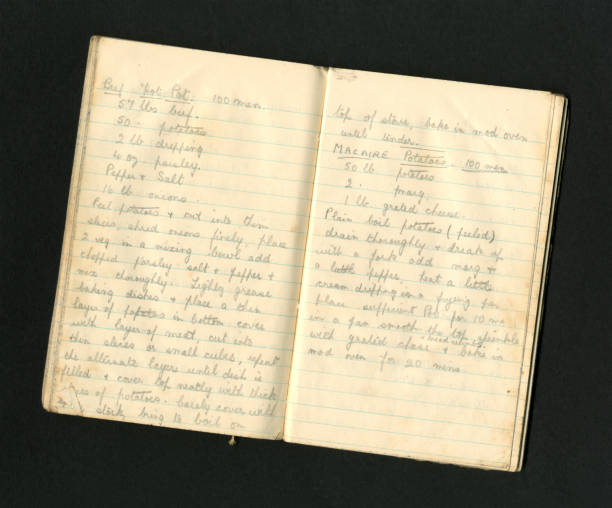 Beef Hot Pot. 100 men.
57 lbs beef.
50 - potatoes
2 lb dripping
4 oz parsley.
Pepper & Salt
16 lb onions.
Peel potatoes & cut into thin
slices, shred onions finely, place
2 veg in a mixing bowl add
chopped parsley salt & pepper &
mix thoroughly. Lightly grease
baking dishes & place a thin
layer of potatoes in bottom, cover
with layer of meat, cut into
thin slices or small cubes, repeat
the alternate layers until dish is
filled & cover top neatly with thick
of potatoes. barely cover with
stock, bring to boil on
top of stove, bake in mod oven
until tender.
MACAIRE Potatoes. 100 men
50 lb potatoes
2 - marg.
1 lb grated cheese.
Plain boil potatoes (peeled)
drain thoroughly & break up
with a fork add marg &
a little pepper. heat a little
clean dripping in a frying pan
place sufficient Pot. for 10 men
in a pan smooth the top sprinkle
with grated cheese & bake in
mod oven for 20 mins